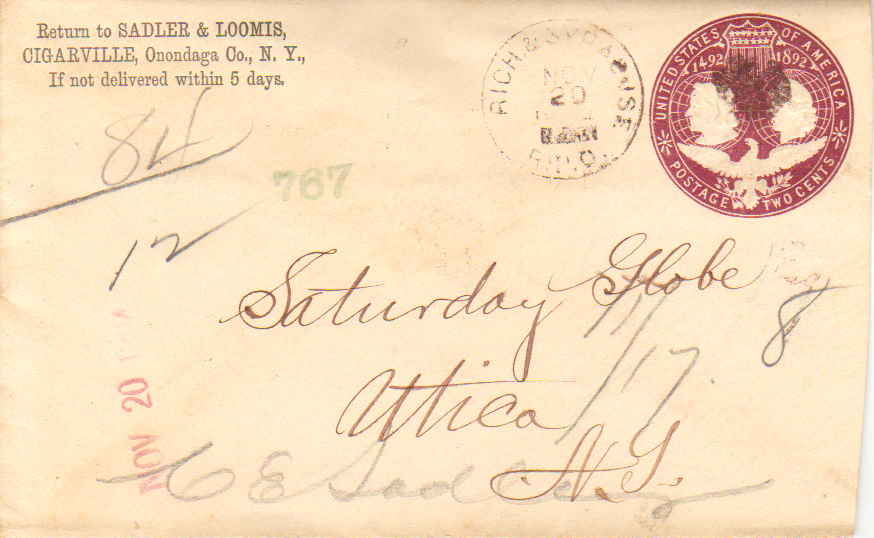 Return to SADLER & LOOMIS,
CIGARVILLE, Onondaga Co., N. Y.,
If not delivered within 5 days.
RICH. & SYRACUSE
NOV
20
R.P.O.
UNITED STATES OF AMERICA
1492 1892
POSTAGE TWO CENTS
84
767
12
Saturday Globe
8
17
Utica
N.Y.
NOV 20
C E Sadler